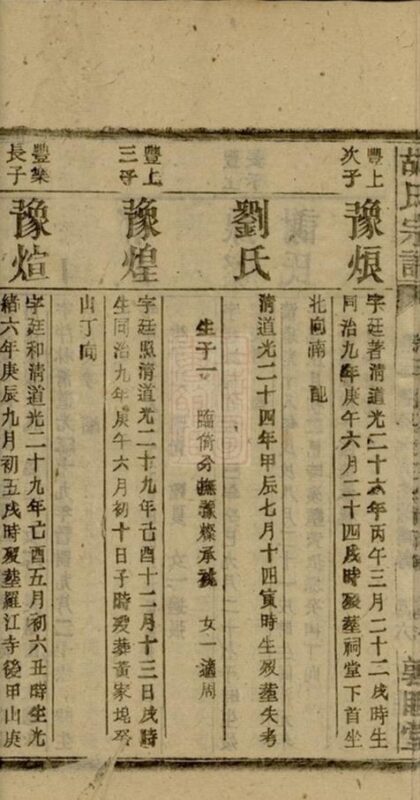 胡氏宗譜
豐上
次子
豫烺
字廷著清道光二十六年丙午三月二十二戌時生
同治九年庚午六月二十四戌時歿塟祠堂下首坐
北向南 配
劉氏
清道光二十四年甲辰七月十四寅時生歿塟失考
生子一 臨倚分撫豫燦承祧 女一適周
豐上
三子
豫煌
字廷照清道光二十九年己酉十二月十三日戌時
生同治九年庚午六月初十日子時歿葬黃家堍癸
山丁向
豐集
長子
豫煊
字廷和清道光二十九年己酉五月初六丑時生光
緒六年庚辰九月初五戌時歿塟羅江寺後甲山庚